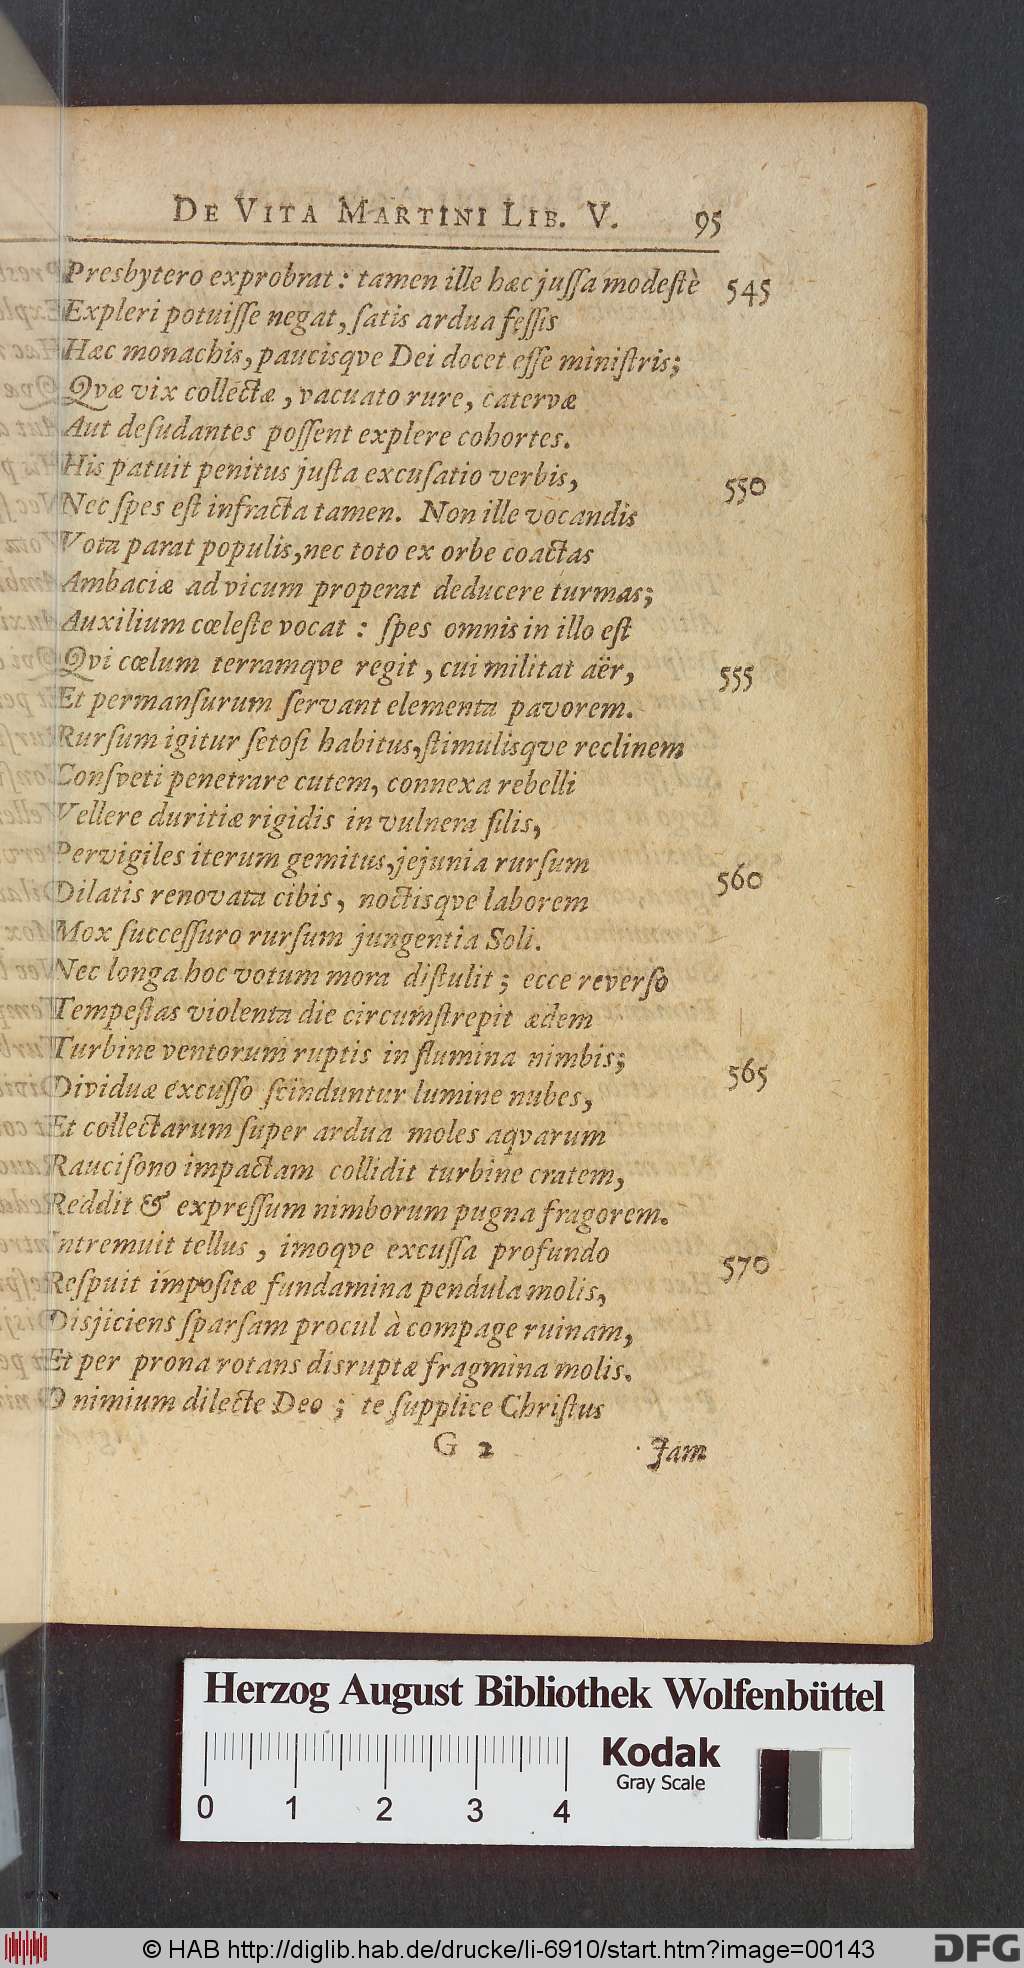 DE VITA MARTINI LIB. V. 95
Presbytero exprobrat: tamen ille hæc jussa modestè 545
Expleri potuisse negat, satis ardua fessis
Hæc monachis, paucisqve Dei docet esse ministris;
Qvæ vix collectæ, vacuato rure, catervæ
Aut desudantes possent explere cohortes.
His patuit penitus justa excusatio verbis, 550
Nec spes est infracta tamen. Non ille vocandis
Vota parat populis, nec toto ex orbe coactas
Ambaciæ ad vicum properat deducere turmas;
Auxilium cœleste vocat: spes omnis in illo est
Qvi cœlum terramqve regit, cui militat aër, 555
Et permansurum servant elementa pavorem.
Rursum igitur setosi habitus, stimulisqve reclinem
Consveti penetrare cutem, connexa rebelli
Vellere duritiæ rigidis in vulnera filis,
Pervigiles iterum gemitus, jejunia rursum 560
Dilatis renovata cibis, noctisqve laborem
Mox successuro rursum jungentia Soli.
Nec longa hoc votum mora distulit; ecce reverso
Tempestas violenta die circumstrepit ædem
Turbine ventorum ruptis in flumina nimbis; 565
Dividuæ excusso scinduntur lumine nubes,
Et collectarum super ardua moles aqvarum
Raucisono impactam collidit turbine cratem,
Reddit & expressum nimborum pugna fragorem.
Intremuit tellus, imoqve excussa profundo 570
Respuit impositæ fundamina pendula molis,
Disjiciens sparsam procul à compage ruinam,
Et per prona rotans disruptæ fragmina molis.
O nimium dilecte Deo; te supplice Christus
G 2 Jam
Herzog August Bibliothek Wolfenbüttel
Kodak
Gray Scale
0 1 2 3 4
© HAB http://diglib.hab.de/drucke/li-6910/start.htm?image=00143
DFG